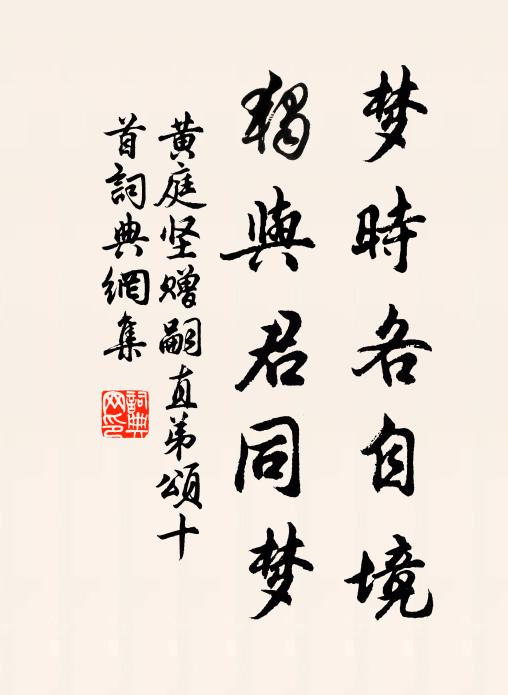 梦時各自境
獨與君同梦
黄庭坚赠嗣直弟頌十
首詞典網集
詞典
网印